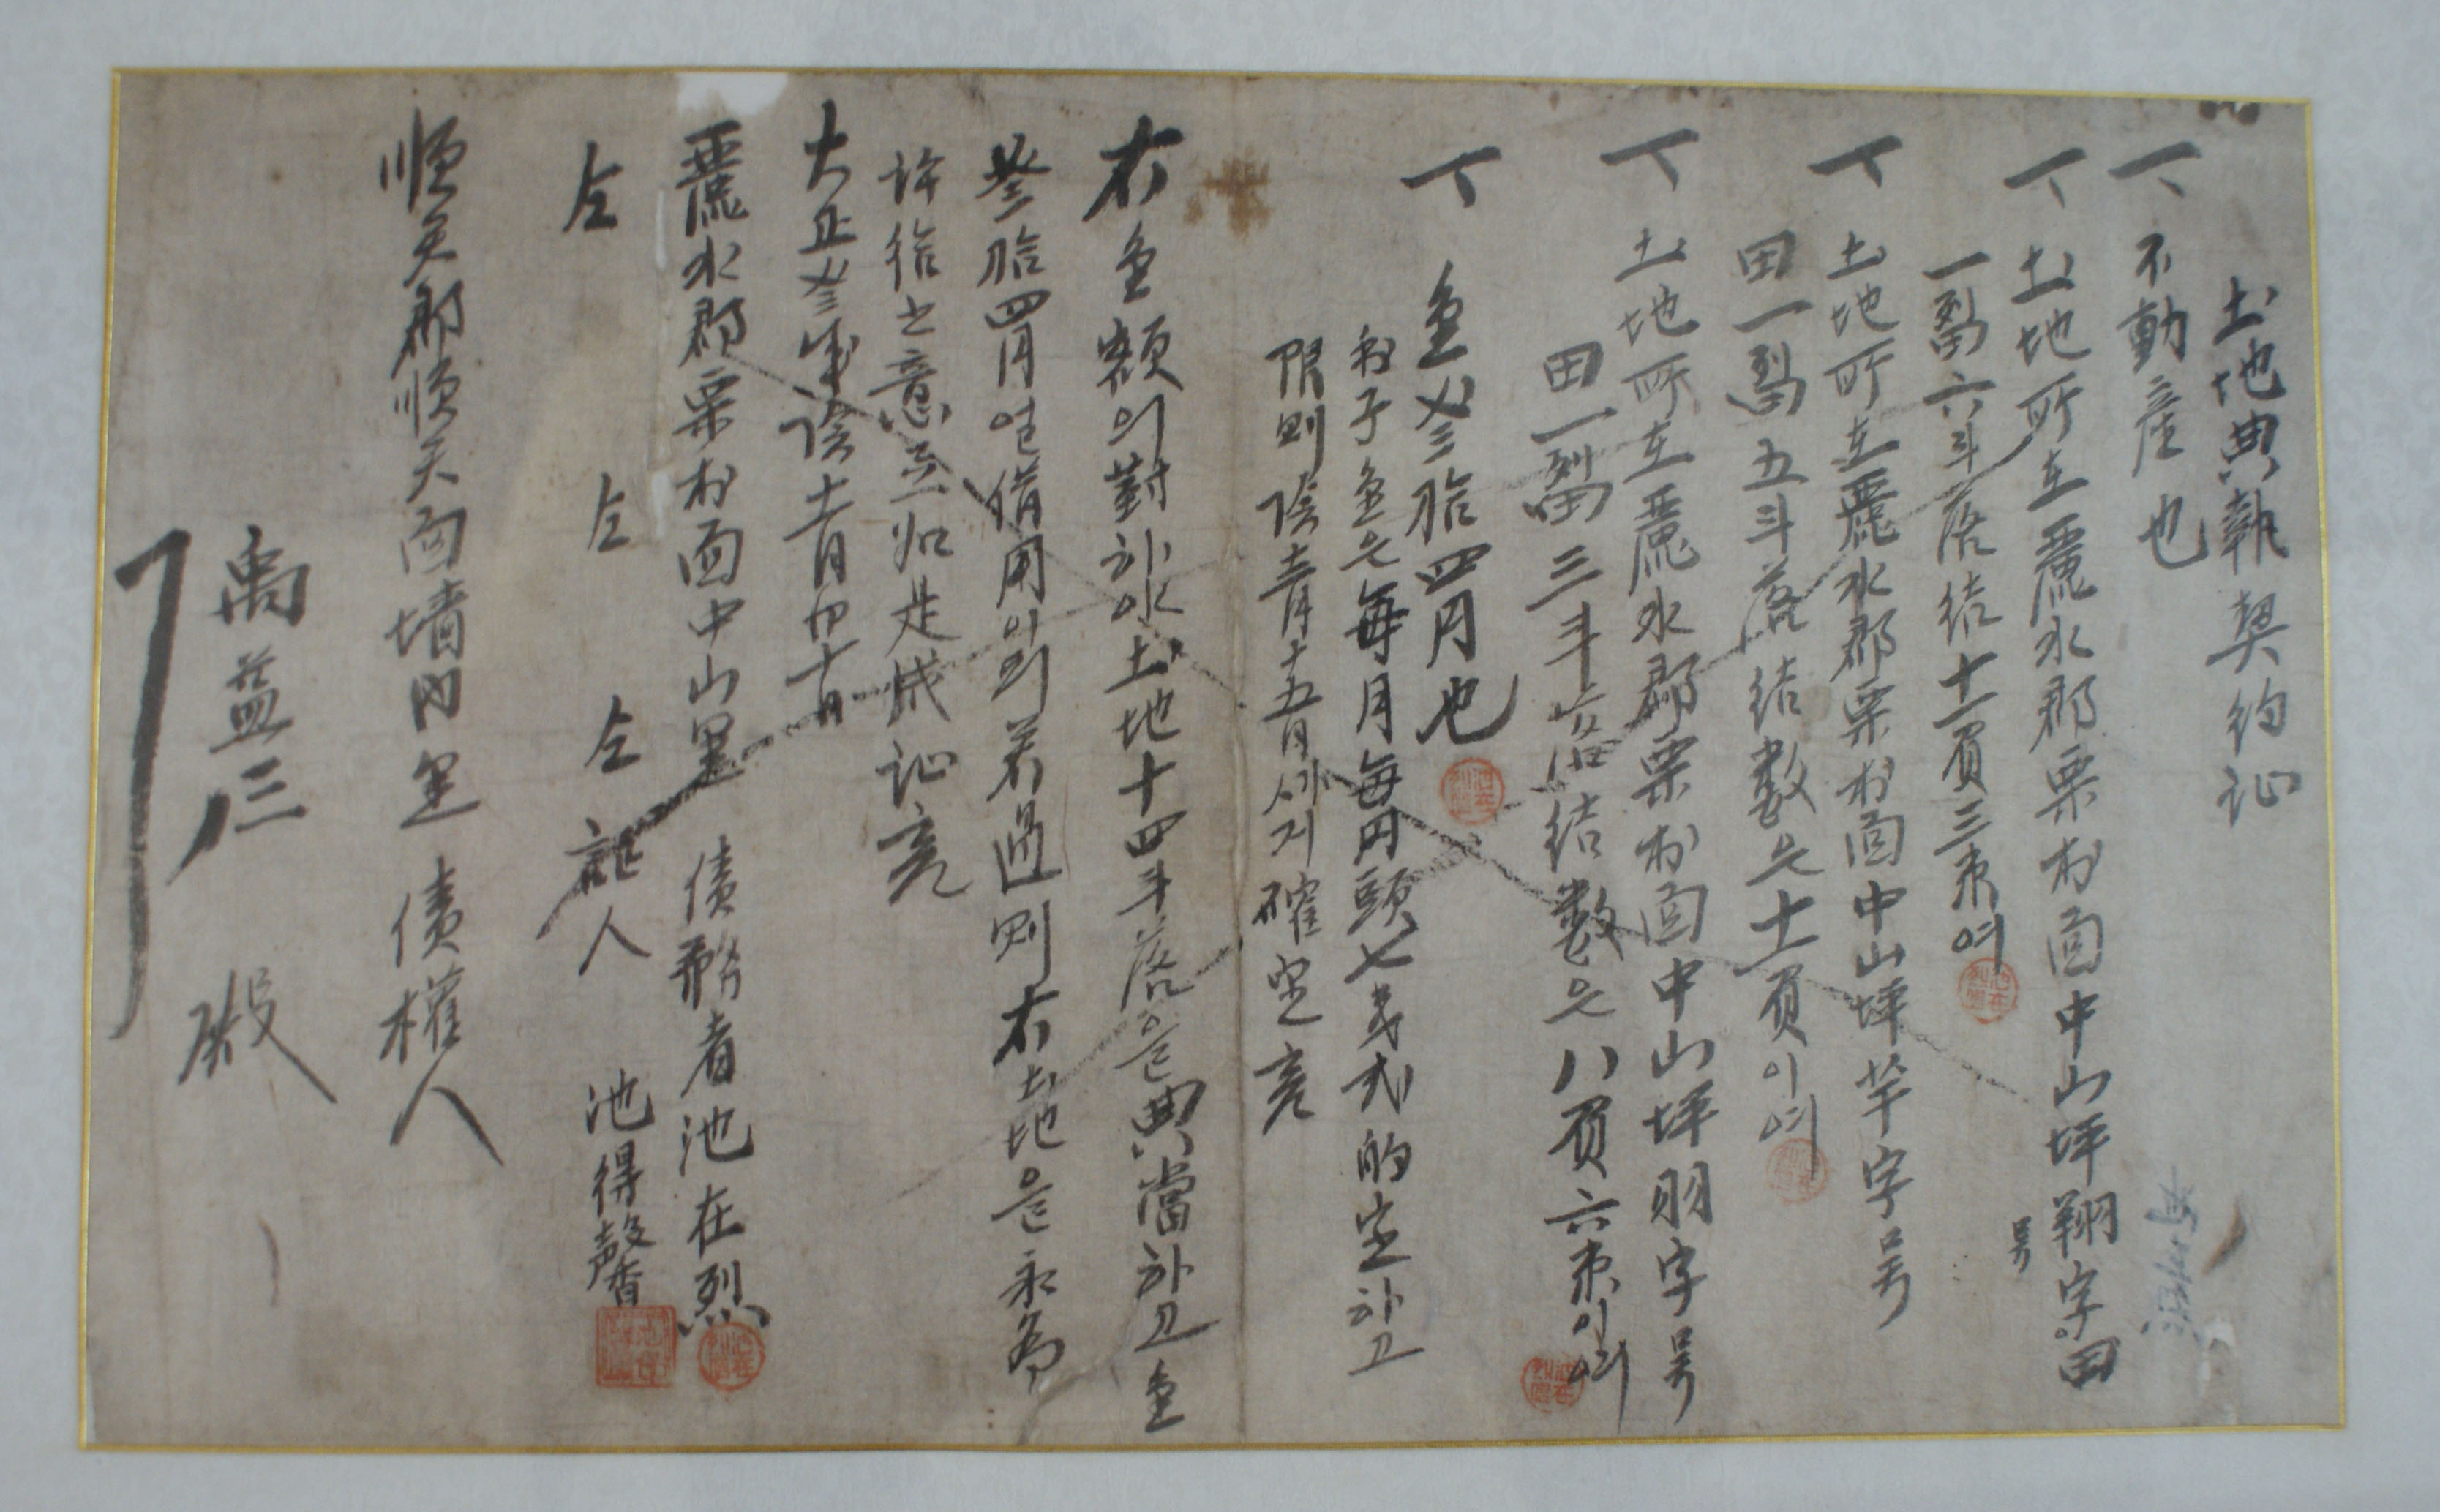 土地典執契約証
一、不動産也
一、土地所在麗水郡栗村面中山坪翔字田
号
一畓六斗落結十一負三束여
一、土地所在麗水郡栗村面中山坪芋字号
田一畓五斗落結數은十一負이여
一、土地所在麗水郡栗村面中山坪羽字号
田一畓三斗落結數은八負六束이여
一、金参拾四円也
利子金은每月每円頭七戔式酌定하고
限則陰十二月十五日새지確定亨
右金額의對하야土地十四斗落을典當하고金
参拾四円也借用이되若過則右土地을永為
許給之意立如是成証亨
大正参年陰十一月卄十日
麗水郡栗村面中山里 債務者 池在烈
仝 仝 仝 証人 池得馨
順天郡順天面墻內里 債權人
禹益三 殿